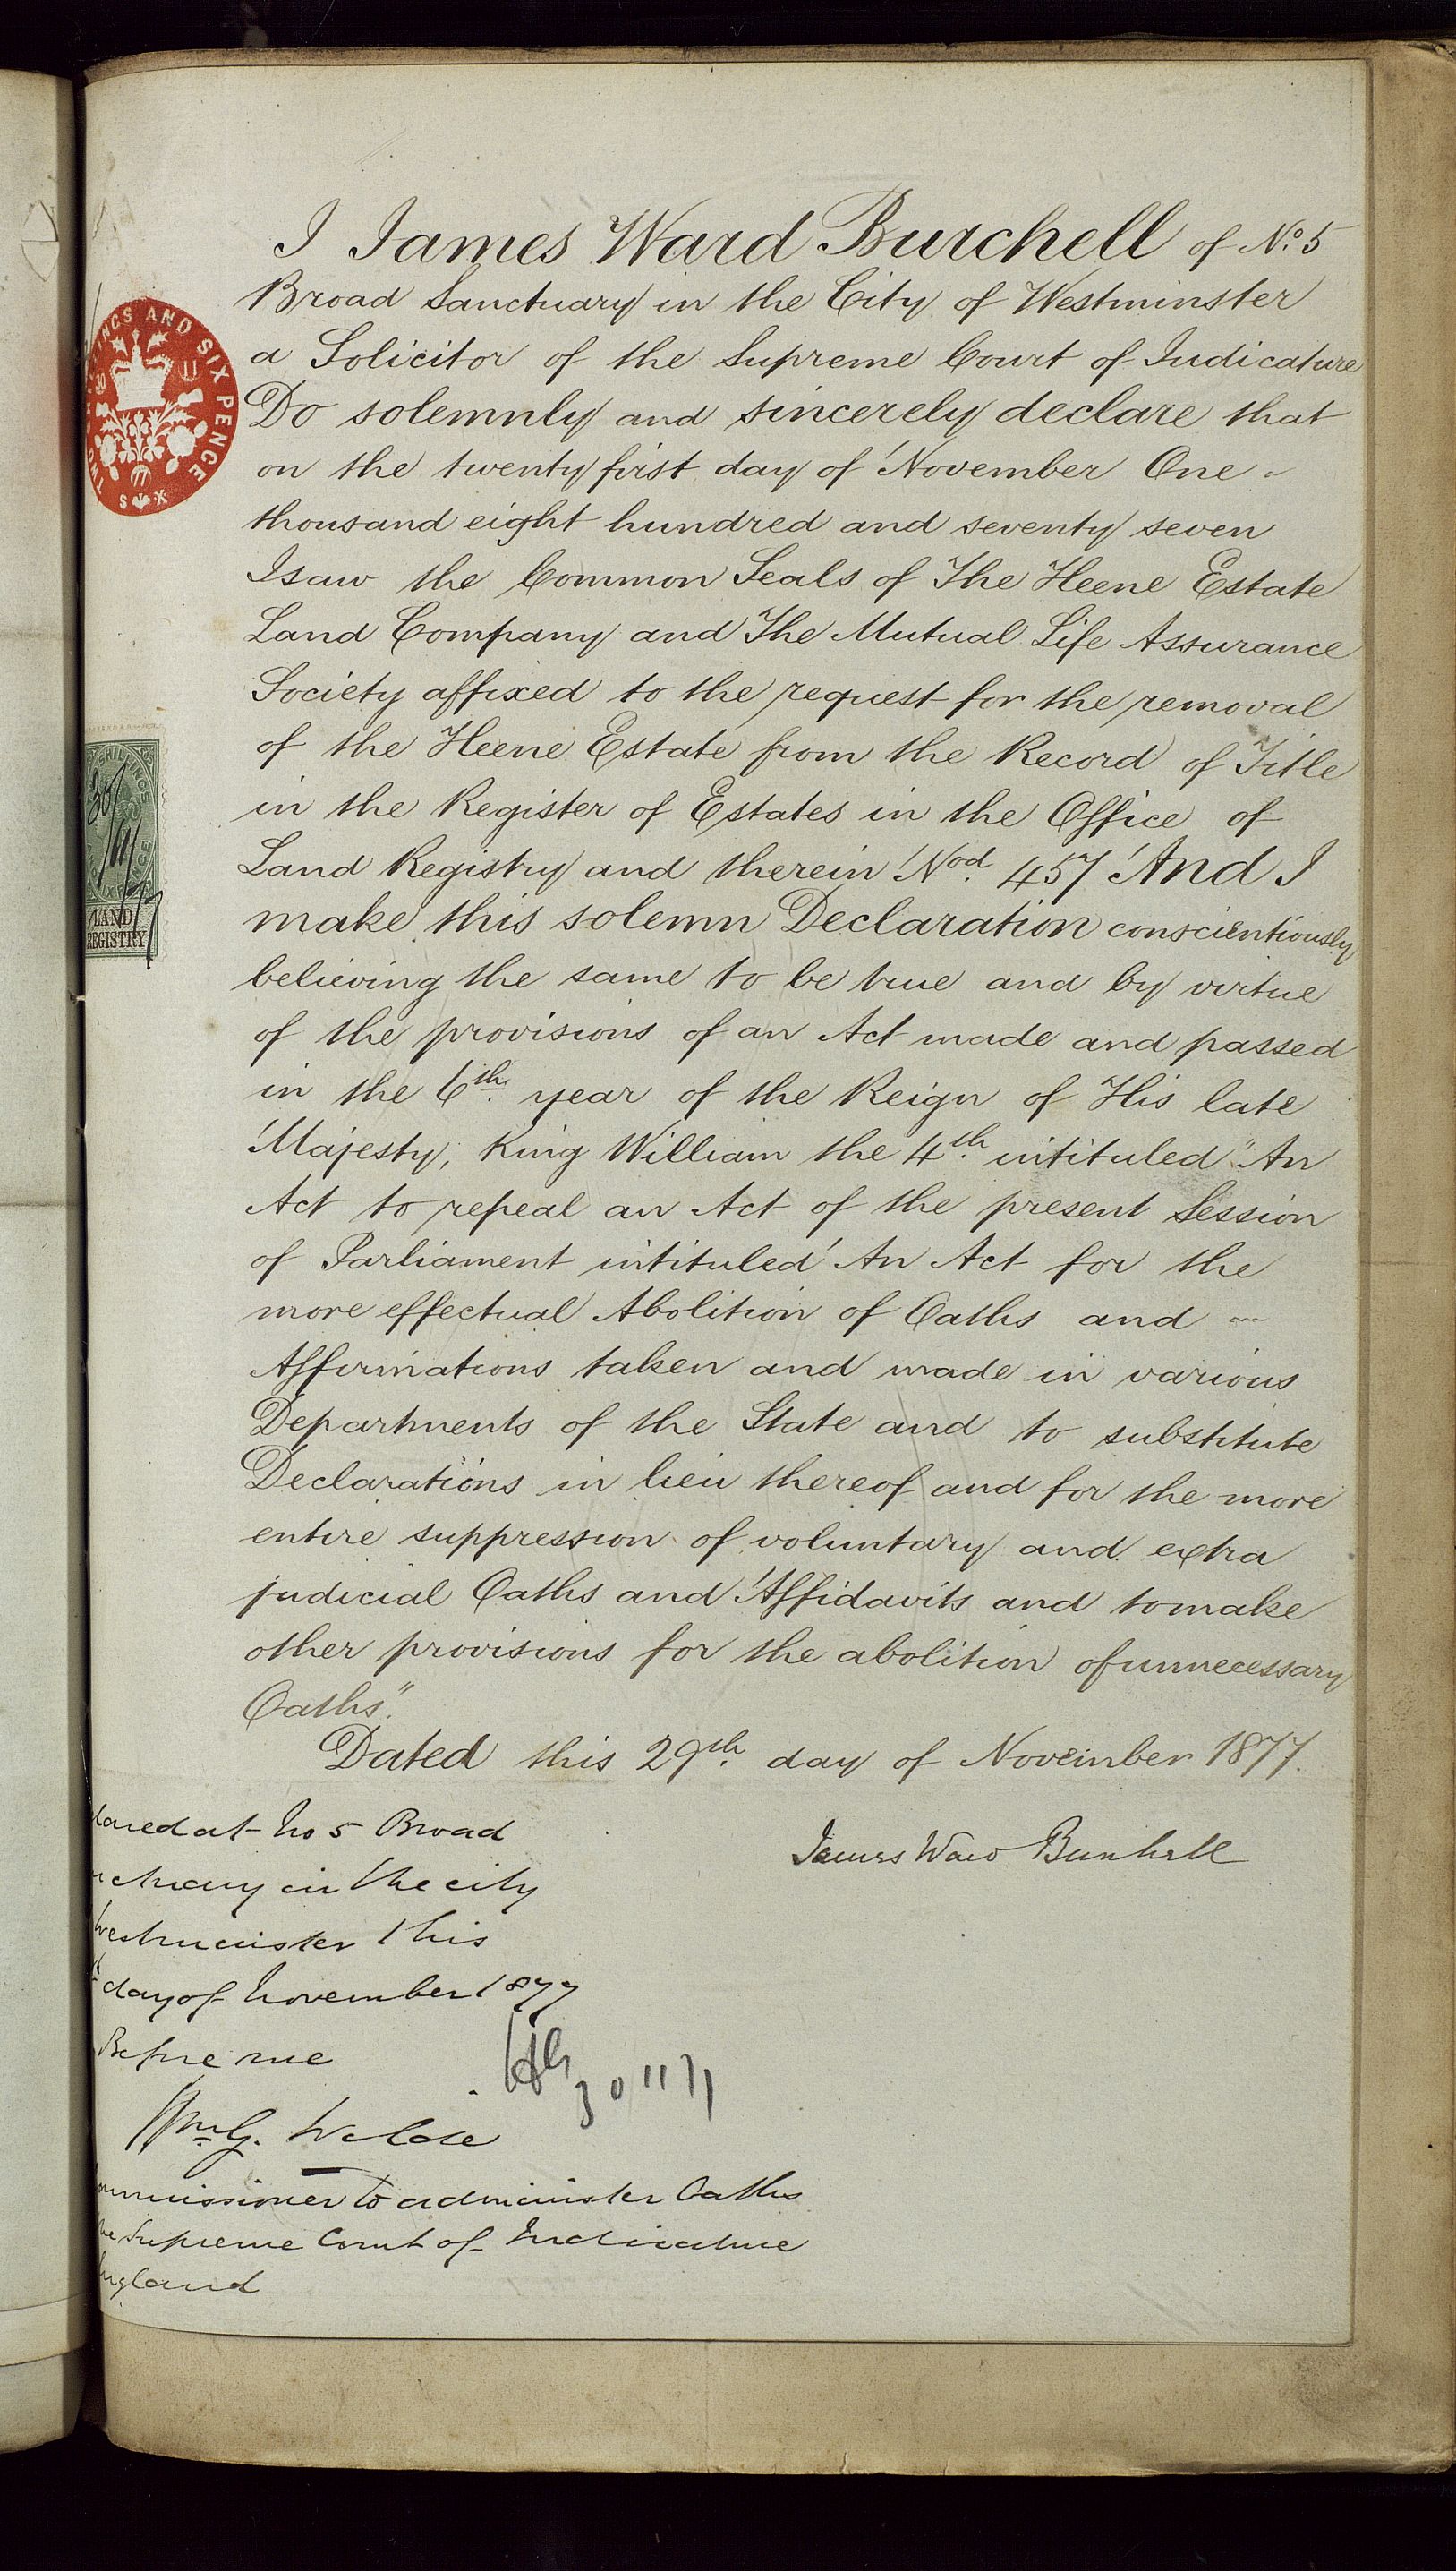 I James Ward Burchell of No. 5
Broad Sanctuary in the City of Westminster
a Solicitor of the Supreme Court of Judicature
Do solemnly and sincerely declare that
on the twenty first day of November One
thousand eight hundred and seventy seven
I saw the Common Seals of The Heene Estate
Land Company and The Mutual Life Assurance
Society affixed to the request for the removal
of the Heene Estate from the Record of Title
in the Register of Estates in the Office of
Land Registry and therein Nod. 457 And I
make this solemn Declaration conscientiously
believing the same to be true and by virtue
of the provisions of an Act made and passed
in the 6th. year of the Reign of His late
Majesty, King William the 4th. intituled "An
Act to repeal an Act of the present Session
of Parliament intituled 'An Act for the
more effectual Abolition of Oaths and
Affirmations taken and made in various
Departments of the State and to substitute
Declarations in lieu thereof and for the more
entire suppression of voluntary and extra
judicial Oaths and Affidavits and to make
other provisions for the abolition of unnecessary
Oaths".
Dated this 29th. day of November 1877.
James Ward Burchell
lared at No 5 Broad
ctuary in the city
Westminster this
day of November 1877
Before me
Wm G. Welde
ommissioner to administer Oaths
he Supreme Court of Judicature
ngland
30 11 77
INGS AND SIX PENCE
30 11
77
SHILLINGS
30/11/77
LAND
REGISTRY